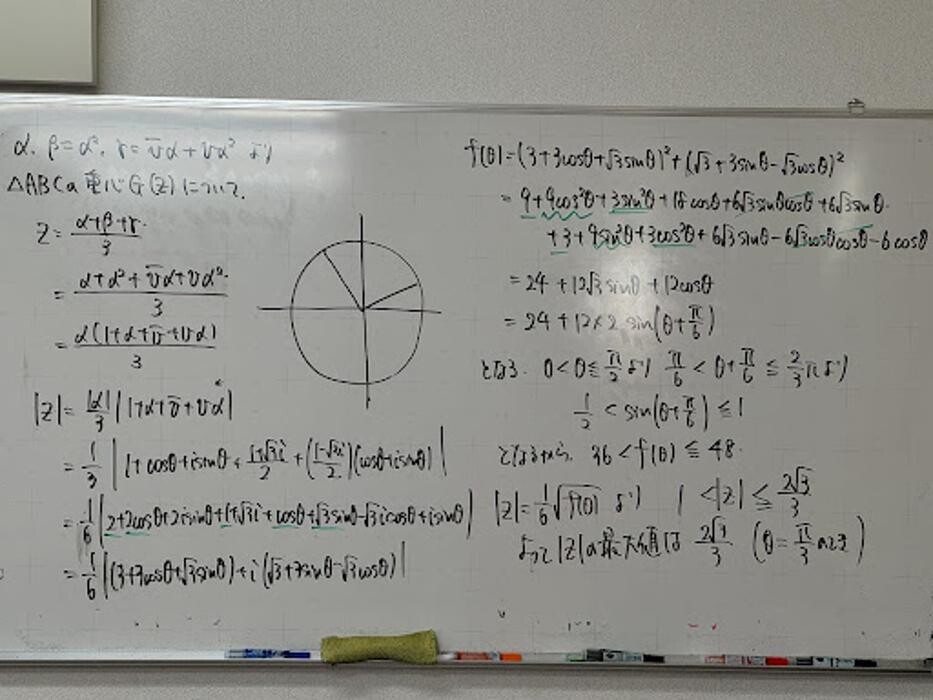 α, β=α², γ=v̄α+vα² より
△ABCの重心G(z)について.
z = (α+β+γ)/3
= (α+α²+v̄α+vα²)/3
= α(1+α+v̄+vα)/3
|z| = |α|/3 |1+α+v̄+vα|
= 1/3 |1+cosθ+isinθ+(1+√3i)/2+((1-√3i)/2)(cosθ+isinθ)|
= 1/6 |2+2cosθ+2isinθ+1+√3i+cosθ+√3sinθ-√3icosθ+isinθ|
= 1/6 |(3+3cosθ+√3sinθ)+i(√3+3sinθ-√3cosθ)|
f(θ)=(3+3cosθ+√3sinθ)²+(√3+3sinθ-√3cosθ)²
= 9+9cos²θ+3sin²θ+18cosθ+6√3sinθcosθ+6√3sinθ
+3+9sin²θ+3cos²θ+6√3sinθ-6√3cosθcosθ-6cosθ
= 24+12√3sinθ+12cosθ
= 24+12×2 sin(θ+π/6)
となる. 0<θ≦π/2 より π/6<θ+π/6≦2/3π より
1/2<sin(θ+π/6)≦1
となるから, 36<f(θ)≦48.
|z|=1/6√f(θ) より 1<|z|≦2√3/3
よって |z|の最大値は 2√3/3 (θ=π/3のとき)